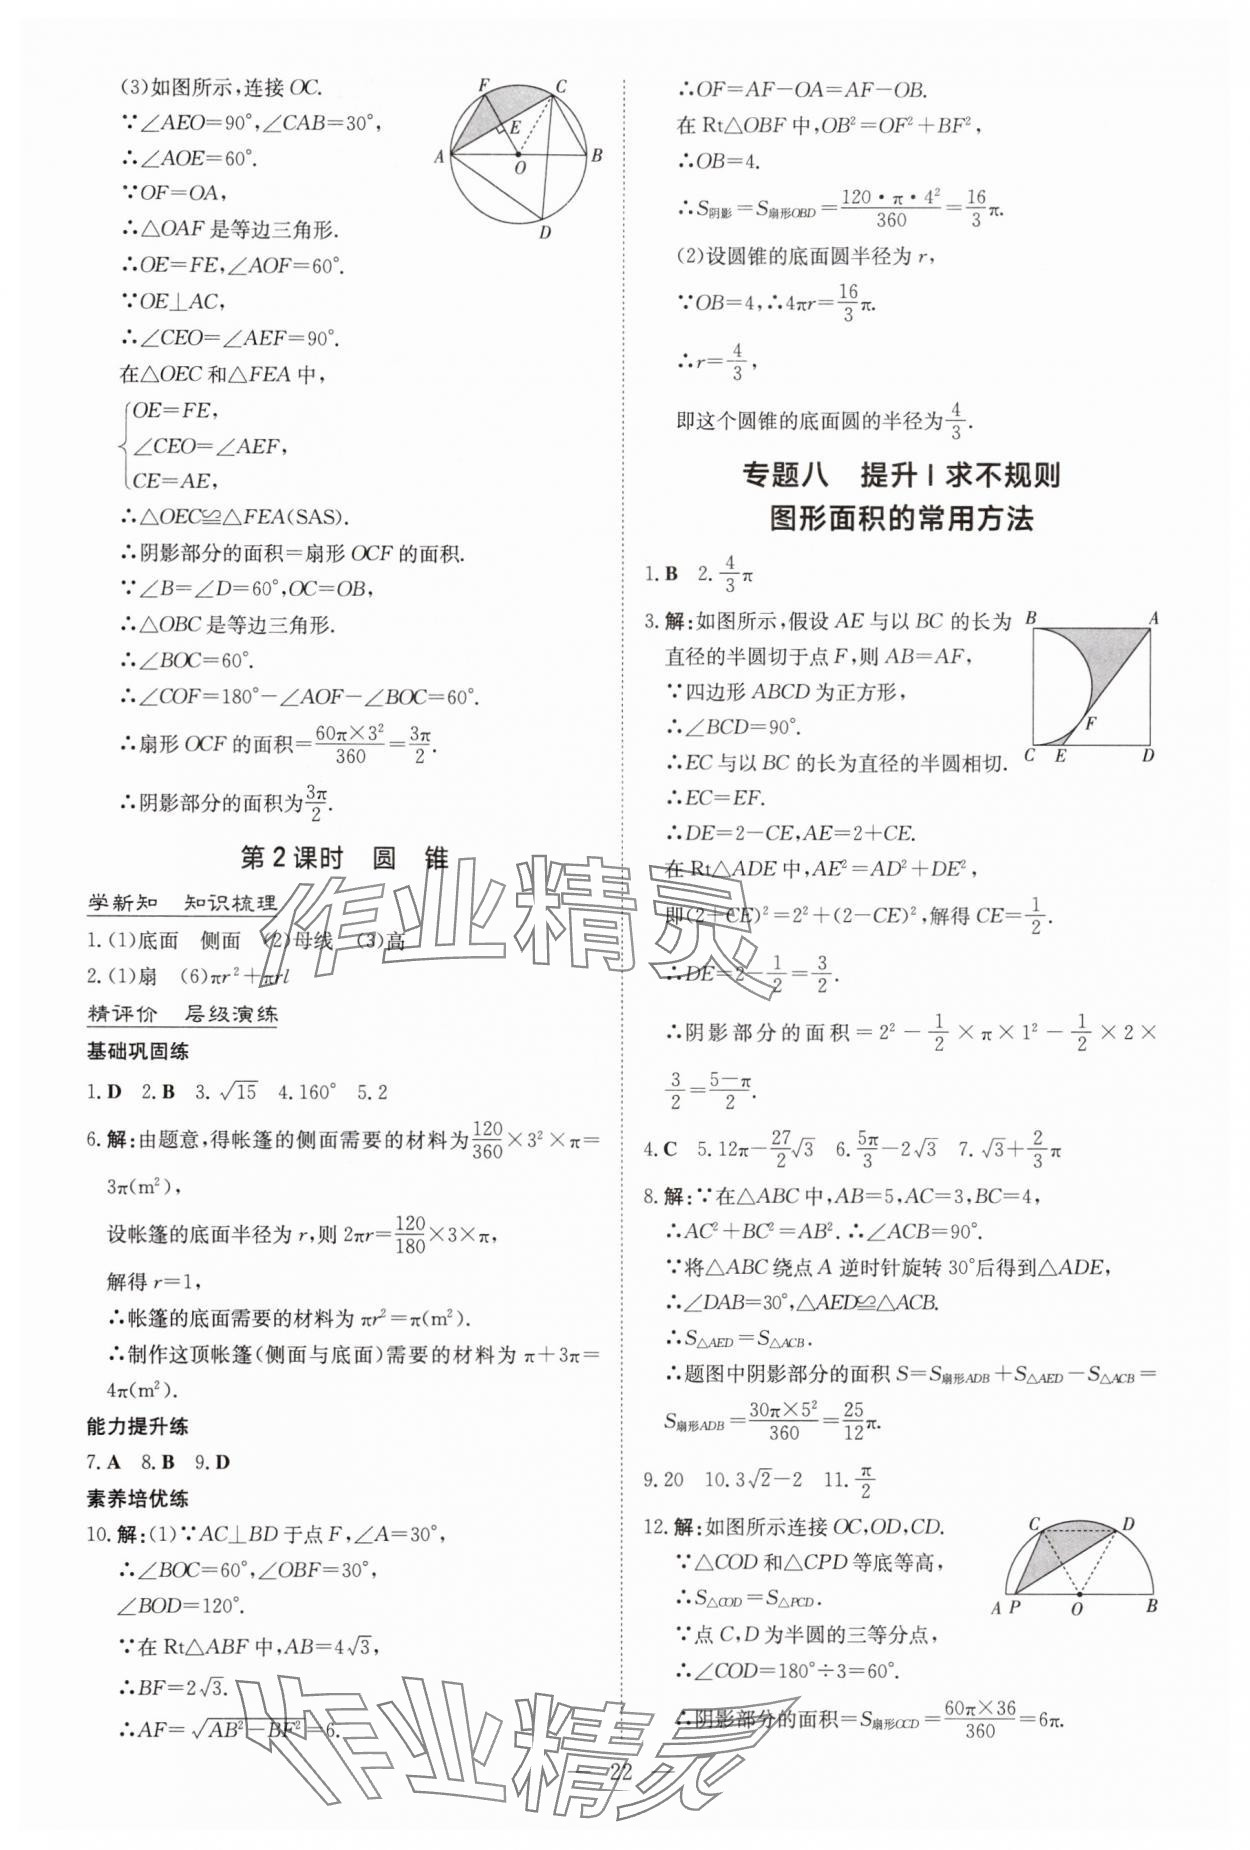 (3)如图所示,连接OC.
∵∠AEO=90°,∠CAB=30°,
∴∠AOE=60°.
∵OF=OA,
∴△OAF是等边三角形.
∴OE=FE,∠AOF=60°.
∵OE⊥AC,
∴∠CEO=∠AEF=90°.
在△OEC和△FEA中,
{OE=FE,
∠CEO=∠AEF,
CE=AE,
∴△OEC≌△FEA(SAS).
∴阴影部分的面积=扇形OCF的面积.
∵∠B=∠D=60°,OC=OB,
∴△OBC是等边三角形.
∴∠BOC=60°.
∴∠COF=180°-∠AOF-∠BOC=60°.
∴扇形OCF的面积=60π×3²/360=3π/2.
∴阴影部分的面积为3π/2.
F C E A O B D
第2课时 圆 锥
学新知 知识梳理
1.(1)底面 侧面 (2)母线 (3)高
2.(1)扇 (6)πr²+πrl
精评价 层级演练
基础巩固练
1.D 2.B 3.√15 4.160° 5.2
6.解:由题意,得帐篷的侧面需要的材料为120/360×3²×π=
3π(m²),
设帐篷的底面半径为r,则2πr=120/180×3×π,
解得r=1,
∴帐篷的底面需要的材料为πr²=π(m²).
∴制作这顶帐篷(侧面与底面)需要的材料为π+3π=
4π(m²).
能力提升练
7.A 8.B 9.D
素养培优练
10.解:(1)∵AC⊥BD于点F,∠A=30°,
∴∠BOC=60°,∠OBF=30°,
∠BOD=120°.
∵在Rt△ABF中,AB=4√3,
∴BF=2√3.
∴AF=√(AB²-BF²)=6.
∴OF=AF-OA=AF-OB.
在Rt△OBF中,OB²=OF²+BF²,
∴OB=4.
∴S阴影=S扇形OBD=120·π·4²/360=16/3π.
(2)设圆锥的底面圆半径为r,
∵OB=4,∴4πr=16/3π.
∴r=4/3,
即这个圆锥的底面圆的半径为4/3.
专题八 提升|求不规则
图形面积的常用方法
1.B 2.4/3π
3.解:如图所示,假设AE与以BC的长为
直径的半圆切于点F,则AB=AF,
∵四边形ABCD为正方形,
∴∠BCD=90°.
∴EC与以BC的长为直径的半圆相切.
∴EC=EF.
∴DE=2-CE,AE=2+CE.
在Rt△ADE中,AE²=AD²+DE²,
即(2+CE)²=2²+(2-CE)²,解得CE=1/2.
∴DE=2-1/2=3/2.
∴阴影部分的面积=2²-1/2×π×1²-1/2×2×
3/2=5-π/2.
B A F C E D
4.C 5.12π-27/2√3 6.5π/3-2√3 7.√3+2/3π
8.解:∵在△ABC中,AB=5,AC=3,BC=4,
∴AC²+BC²=AB².∴∠ACB=90°.
∵将△ABC绕点A逆时针旋转30°后得到△ADE,
∴∠DAB=30°,△AED≌△ACB.
∴S△AED=S△ACB.
∴题图中阴影部分的面积S=S扇形ADB+S△AED-S△ACB=
S扇形ADB=30π×5²/360=25/12π.
9.20 10.3√2-2 11.π/2
12.解:如图所示连接OC,OD,CD.
∵△COD和△CPD等底等高,
∴S△COD=S△PCD.
∵点C,D为半圆的三等分点,
∴∠COD=180°÷3=60°.
∴阴影部分的面积=S扇形OCD=60π×36/360=6π.
C D A P O B
作业精灵
作业精灵
— 22 —